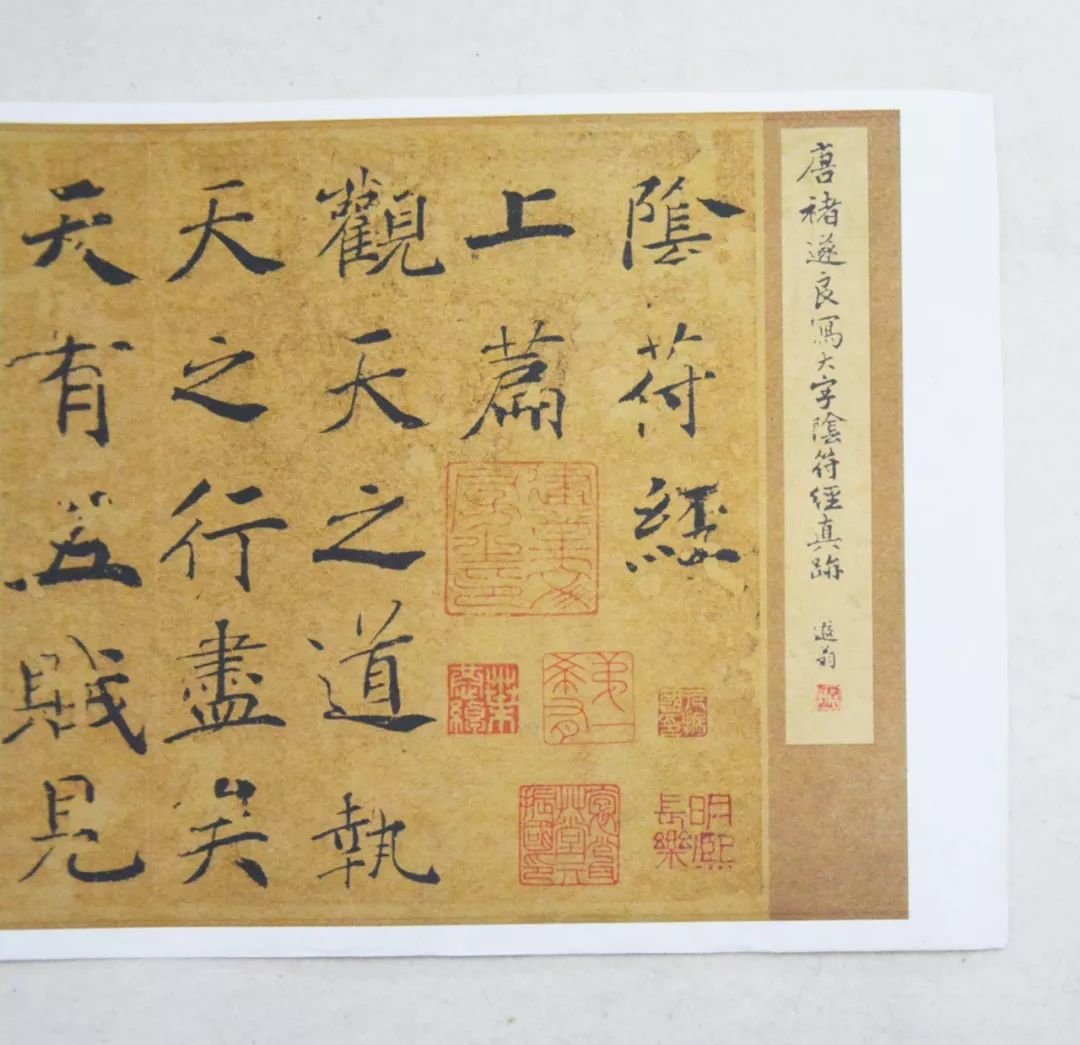 唐褚遂良寫大字陰符經真跡
遐翁
陰符經
上篇
觀天之道執
天之行盡矣
天有五賊見
建業文房之印